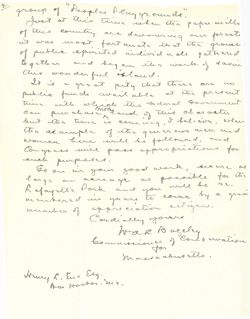 group of "Peoples Playgrounds".
Just at this time when the paper mills
of this country are devouring our forests
it was most fortunate that the group
of public spirited individuals gathered
together and began the work of saving
this wonderful island.
It is a great pity that there are no
public funds available at the present
time with which the Federal Government
can purchase more land of this character
but the time is coming, I believe, when
the example of the generous men and
women here will be followed, and
Congress will make appropriations for
such purposes.
Go on in your good work, secure as
large an acreage as possible for the
Lafayette Park and you will be re-
membered in years to come by a great
number of appreciative citizens.
Cordially yours
Commissioner of Conservation
for
Massachusetts.
Henry L. Eno Esq.
Bar Harbor, Me.